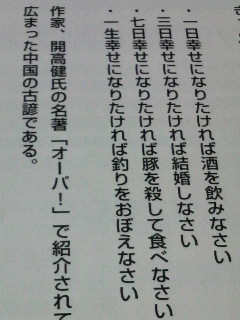 ・一日幸せになりたければ酒を飲みなさい
・三日幸せになりたければ結婚しなさい
・七日幸せになりたければ豚を殺して食べなさい
・一生幸せになりたければ釣りをおぼえなさい
作家、開高健氏の名著「オーパ！」で紹介されて
広まった中国の古諺である。